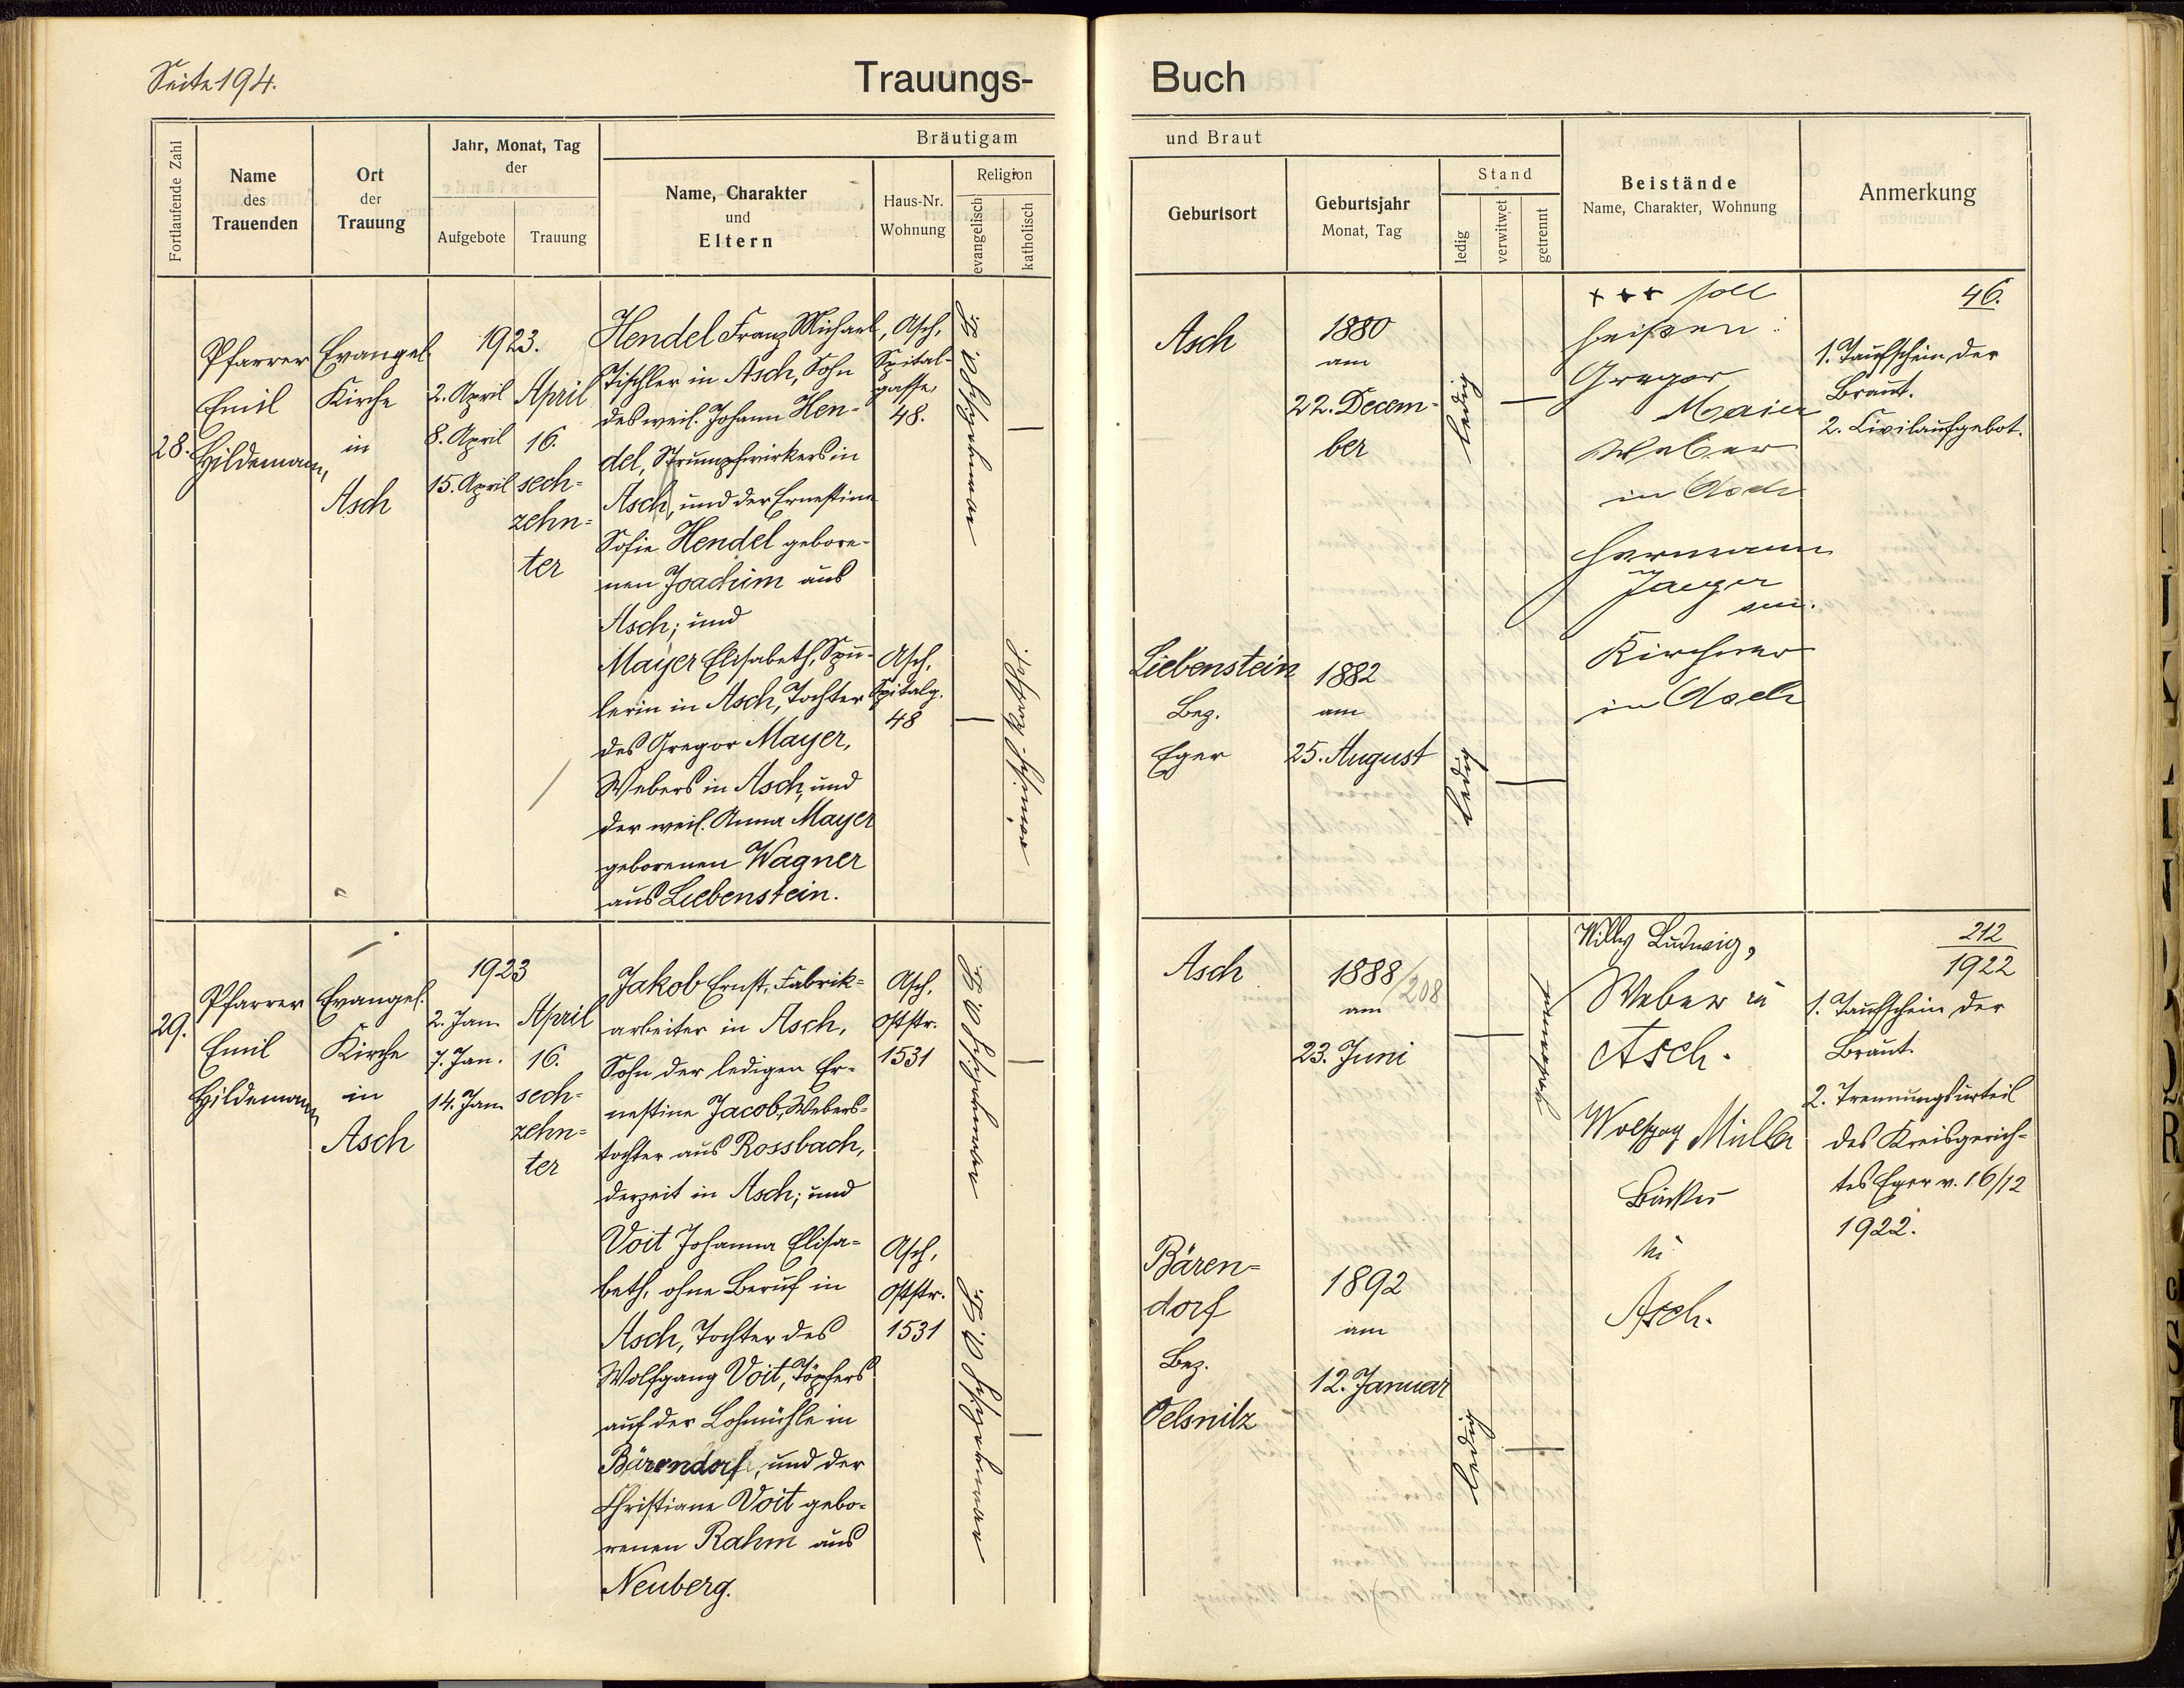 Seite 194.
Trauungs-
Buch
Fortlaufende Zahl
Name
des
Trauenden
Ort
der
Trauung
Jahr, Monat, Tag
der
Aufgebote
Trauung
Bräutigam
Name, Charakter
und
Eltern
Haus-Nr.
Wohnung
Religion
evangelisch
katholisch
und Braut
Geburtsort
Geburtsjahr
Monat, Tag
Stand
ledig
verwitwet
getrennt
Beistände
Name, Charakter, Wohnung
Anmerkung
28.
Pfarrer
Emil
Hildemann,
Evangel.
Kirche
in
Asch
1923.
2. April
8. April
15. April
April
16.
sech-
zehn-
ter
Hendel Franz Michael,
Tischler in Asch, Sohn
des weil. Johann Hen-
del, Strumpfwirkers in
Asch, und der Ernestine
Sofie Hendel gebore-
nen Joachim aus
Asch; und
Mayer Elisabeth, Spu-
lerin in Asch, Tochter
des Gregor Mayer,
Webers in Asch, und
der weil. Anna Mayer
geborenen Wagner
aus Liebenstein.
Asch,
Spital-
gasse,
48.
Asch,
Spitalg.
48
evangelisch A. B.
römisch-kathol.
Asch
1880
am
22. Decem-
ber
ledig
Liebenstein
Bez.
Eger
1882
am
25. August
ledig
+++ soll
heißen:
Gregor
Maier
Weber
in Asch
Hermann
Jaeger
sen.
Kirchner
in Asch
46.
1. Taufschein der
Braut.
2. Civilaufgebot.
29.
Pfarrer
Emil
Hildemann
Evangel.
Kirche
in
Asch
1923
2. Jan.
7. Jan.
14. Jan.
April
16.
sech-
zehn-
ter
Jakob Ernst, Fabrik-
arbeiter in Asch,
Sohn der ledigen Er-
nestine Jacob, Webers-
tochter aus Rossbach,
derzeit in Asch; und
Voit Johanna Elisa-
beth, ohne Beruf in
Asch, Tochter des
Wolfgang Voit, Töpfers
auf der Lohmühle in
Bärendorf, und der
Christiane Voit gebo-
renen Rahm aus
Neuberg.
Asch,
Oststr.
1531
Asch,
Oststr.
1531
evangelisch A. B.
evangelisch A. B.
Asch
1888/208
am
23. Juni
getrennt
Bären-
dorf
Bez.
Oelsnitz
1892
am
12. Januar
ledig
Willy Ludwig,
Weber in
Asch.
Wolfgag Müller
Bäcker
in
Asch.
212
1922
1. Taufschein der
Braut.
2. Trennungsurteil
des Kreisgerich-
tes Eger v. 16/12
1922.